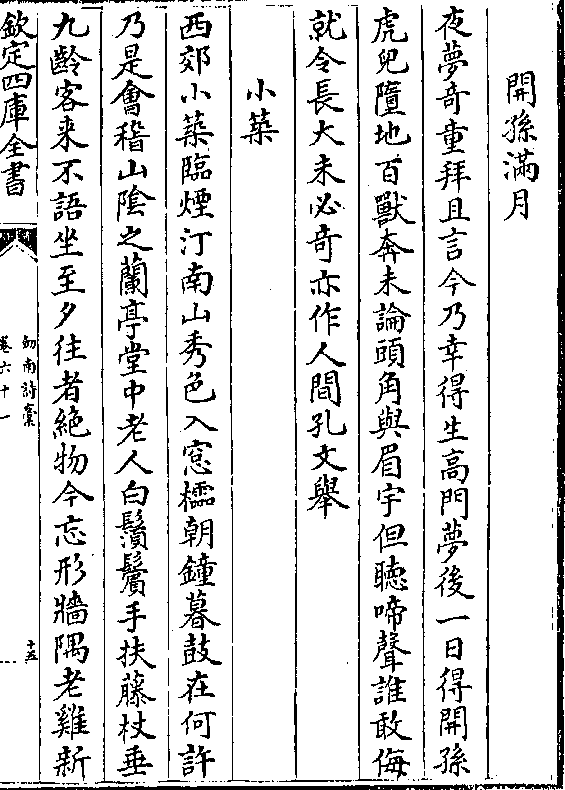 開孫滿月
夜夢奇童拜且言今乃幸得生高門夢後一日得開孫
虎兕墮地百獸奔未論頭角與眉宇但聽啼聲誰敢侮
就令長大未必奇亦作人間孔文舉
小築
西郊小築臨煙汀南山秀色入窓櫺朝鐘暮鼓在何許
乃是會稽山陰之蘭亭堂中老人白鬚鬢手扶藤杖垂
九齡客来不語坐至夕往者絶物今忘形牆隅老雞新
欽定四庫全書
劒南詩稾
卷六十一
十五